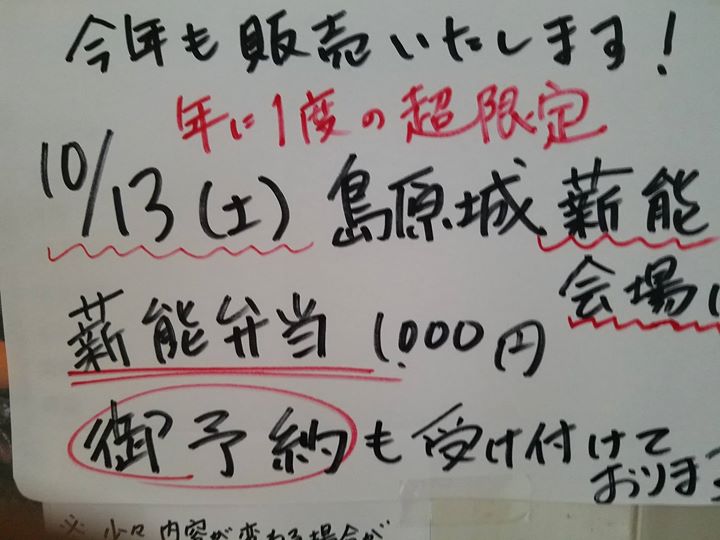 今年も販売いたします!
年に1度の超限定
10/13(土) 島原城 薪能
会場
薪能弁当 1,000円
御予約も受け付けて
おりま
※少々内容が変わる場合が